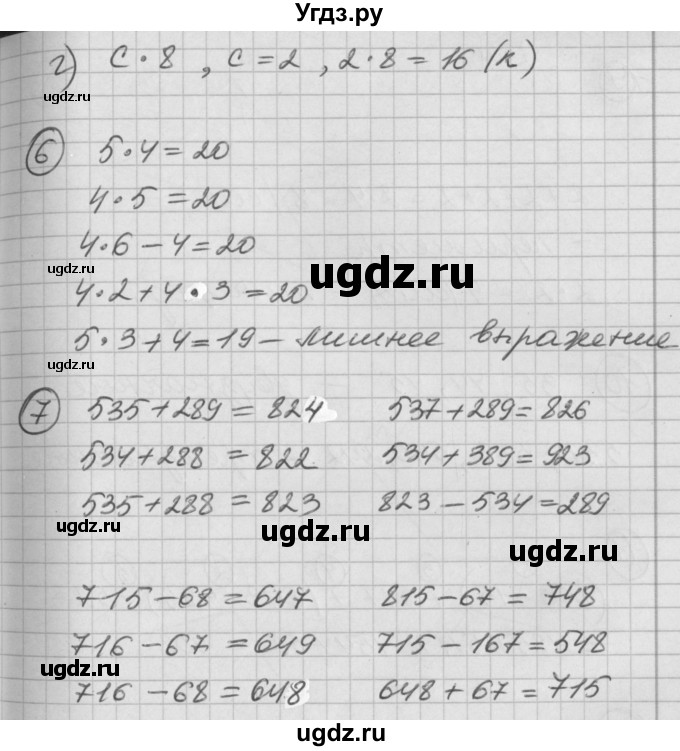 Угдз.ру
г) c · 8 , c = 2 , 2 · 8 = 16 (к)
ugdz.ru
6 5 · 4 = 20
4 · 5 = 20
4 · 6 − 4 = 20
ugdz.ru
ugdz.ru
4 · 2 + 4 · 3 = 20
5 · 3 + 4 = 19 − лишнее выражение
ugdz.ru
7 535 + 289 = 824 537 + 289 = 826
534 + 288 = 822 534 + 389 = 923
535 + 288 = 823 823 − 534 = 289
ugdz.ru ugdz.ru
ugdz.ru
715 − 68 = 647 815 − 67 = 748
716 − 67 = 649 715 − 167 = 548
ugdz.ru
716 − 68 = 648 648 + 67 = 715
ugdz.ru